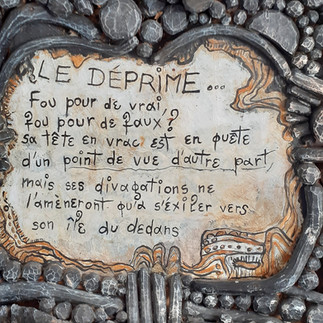 LE DÉPRIME...
Fou pour de vrai
fou pour de faux?
sa tête en vrac est en quête
d'un point de vue d'autre part,
mais ses divagations ne
l'amèneront qu'à s'éxiler vers
son île du dedans